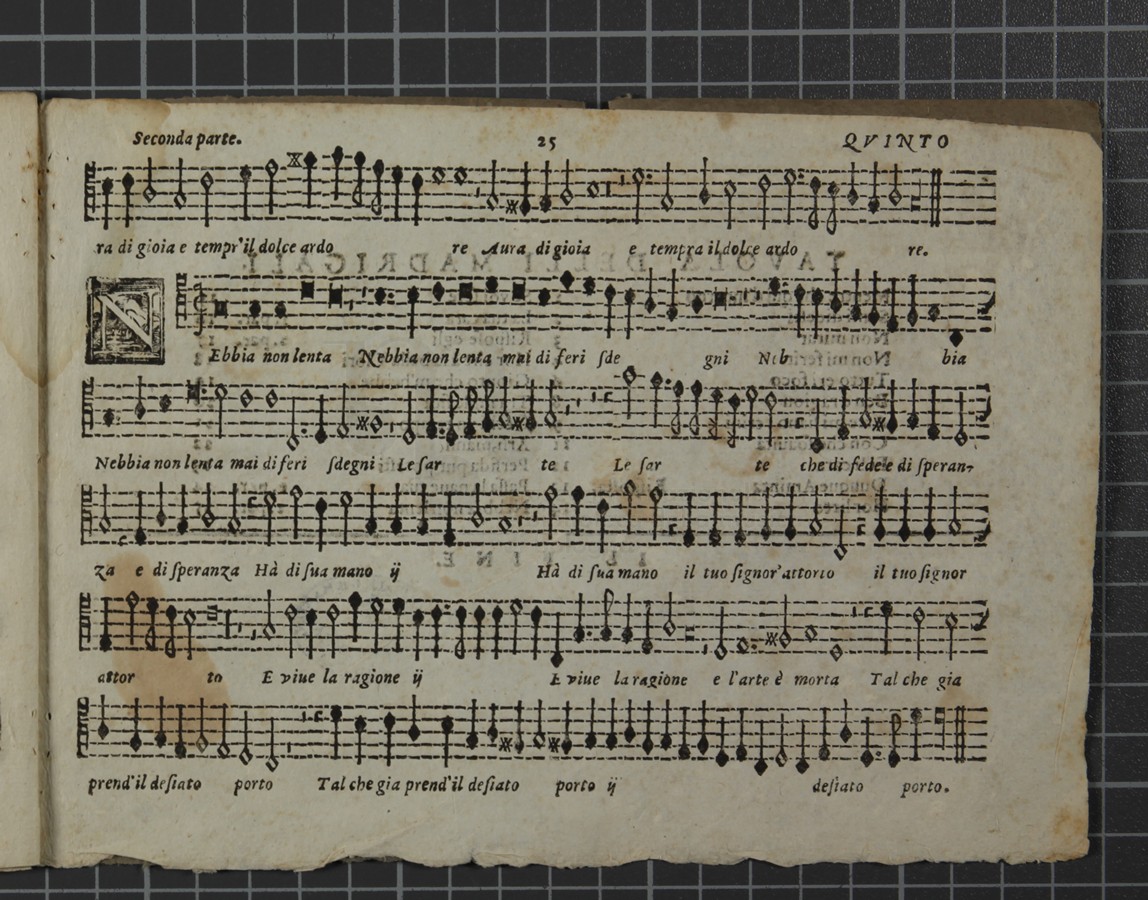 Seconda parte. 25 QVINTO
ra di gioia e tempr'il dolce ardo re Aura di gioia e tempra il dolce ardo re.
N
Ebbia non lenta Nebbia non lenta mai di feri sde gni Neb bia
Nebbia non lenta mai di feri sdegni Le sar te Le sar te che di fede e di speran-
za e di speranza Hà di sua mano ij Hà di sua mano il tuo signor'attorto il tuo signor
attor to E viue la ragione ij E viue la ragione e l'arte è morta Tal che gia
prend'il desiato porto Tal che gia prend'il desiato porto ij desiato porto.